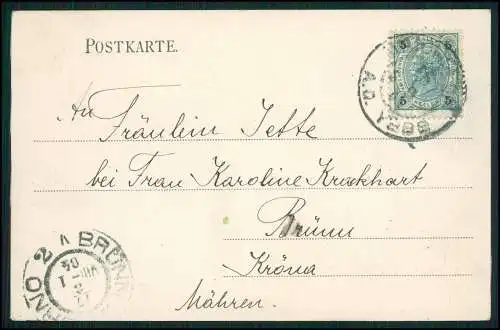 POSTKARTE.
An
Fräulein Jette
bei Frau Karoline Krackhart
Brünn
Kröna
Mähren.
5 5
A.D.
BRÜNN 2
BRNO